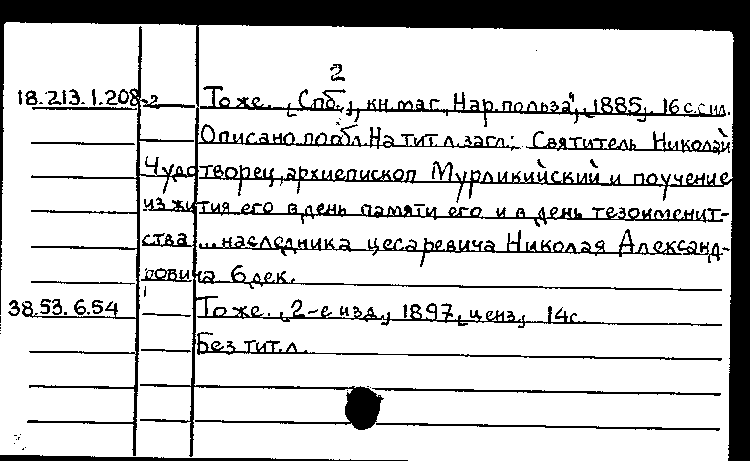 2
18.213.1.208-2 То же. [Спб.], кн. маг. "Нар. польза", [1885]. 16 с. с ил.
Описано по обл. На тит. л. загл.: Святитель Николай
Чудотворец, архиепископ Мурликийский и поучение
из жития его в день памяти его и в день тезоименит-
ства ... наследника цесаревича Николая Александ-
ровича 6 дек.
38.53.6.54 То же. [2-е изд.], 1897 [ценз.]. 14 с.
Без тит. л.